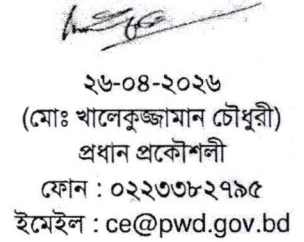 ২৬-০৪-২০২৬
(মোঃ খালেকুজ্জামান চৌধুরী)
প্রধান প্রকৌশলী
ফোন : ০২২৩৩৮২৭৯৫
ইমেইল : ce@pwd.gov.bd